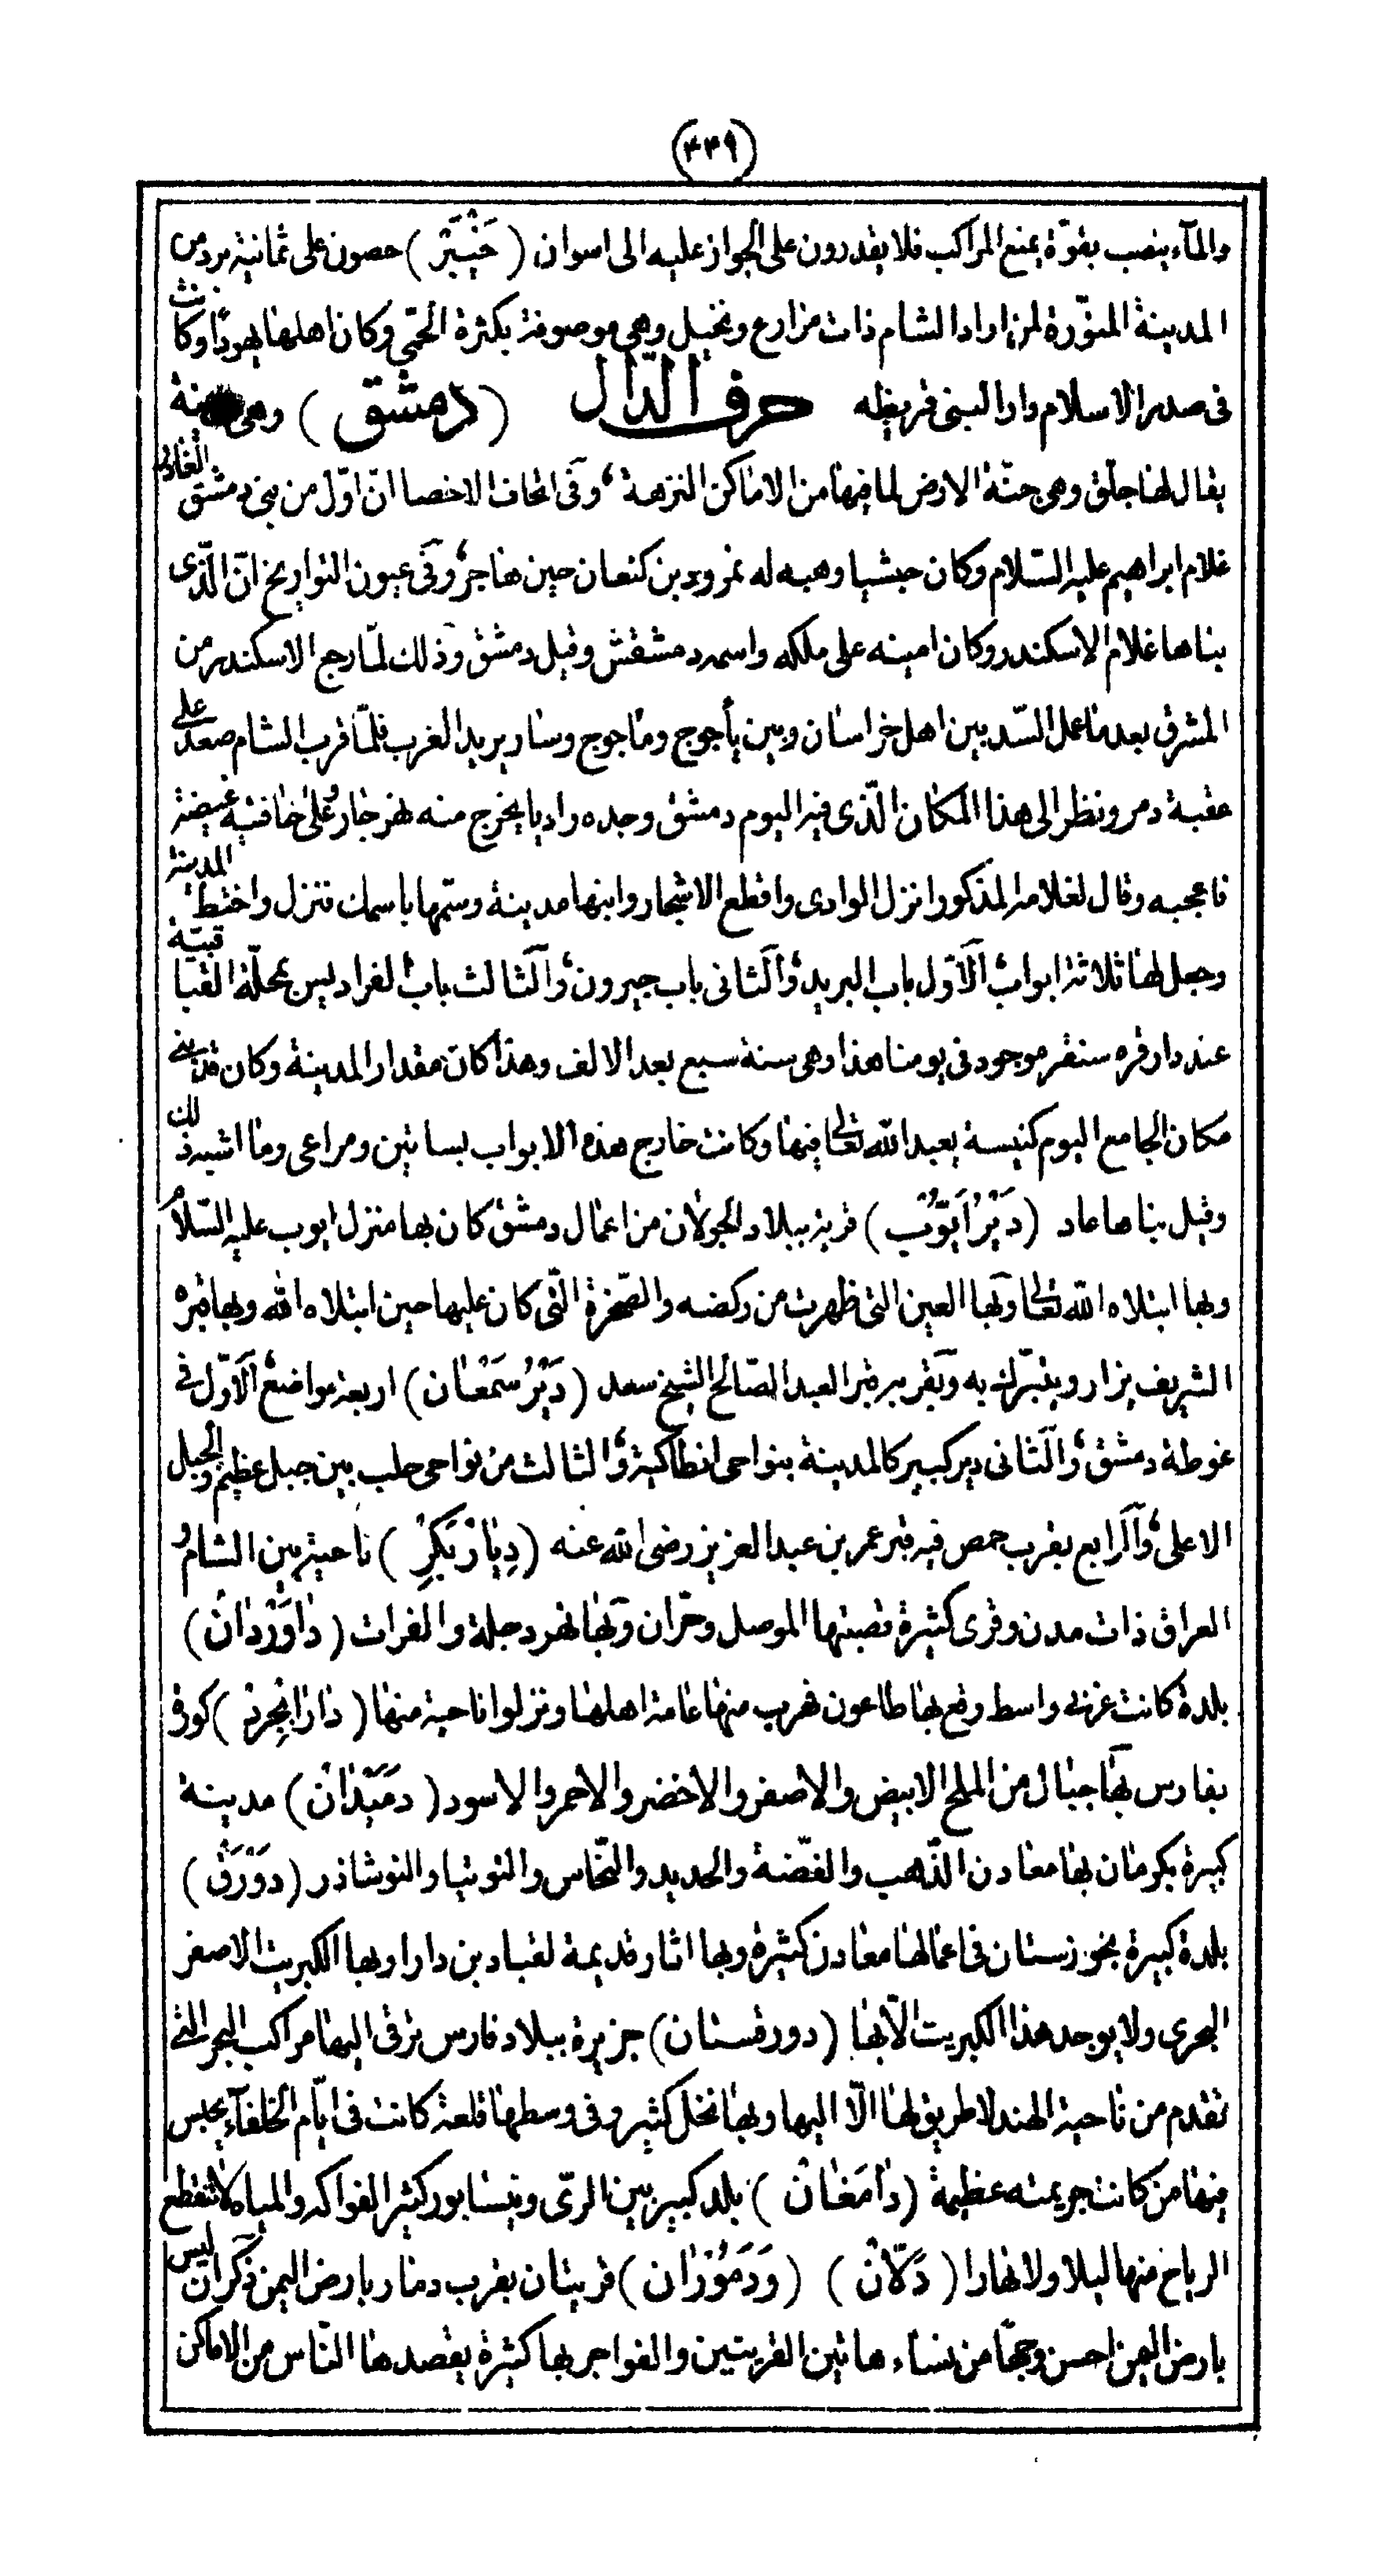 (٤٤٩)
والمآء ينصب بقوّة يمنع المراكب فلا يقدرون على الجواز عليه الى اسوان (خَيْبَر) حصون على ثمانية برد من
المدينة المنوّرة لمن اراد الشام ذات مزارع ونخيل وهى موصوفة بكثرة الحمّى وكان اهلها يهودًا وكانت
فى صدر الاسلام دارا لبنى قريظه حرف الدّال (دمشق) وهى
يقال لها جلّق وهى جنّة الارض لما فيها من الاماكن النزهة وفى اتحاف الاخصا انّ اوّل من بنى دمشق العازر
غلام ابراهيم عليه السّلام وكان حبشيا وهبه له نمرود بن كنعان حين هاجر وفى عيون التواريخ انّ الّذى
بناها غلام الاسكندر وكان امينه على ملكه واسمه دمشقش وقيل دمشق وذلك لمّا رجع الاسكندر من
المشرق بعد ما عمل السّد بين اهل خراسان وبين يأجوج ومأجوج وسار يريد الغرب فلمّا قرب الشام صعد على
عقبة دمر ونظر الى هذا المكان الّذى فيه اليوم دمشق وجده واديا يخرج منه نهر جار وعلى حافتيه غيضة
فاعجبه وقال لغلامه المذكور انزل الوادى واقطع الاشجار وابنها مدينة وسمّها باسمك فنزل واختط المدينة
وجعل لها ثلاثة ابواب الاوّل باب البريد والثانى باب جيرون والثالث باب الفراديس بمحلّة القباقبيّة
عند دار قره سنقر موجود فى يومنا هذا وهى سنة سبع بعد الالف وهذا كان مقدار المدينة وكان قد بنى
مكان الجامع اليوم كنيسة يعبد الله تعالى فيها وكانت خارج هذه الابواب بساتين ومراعى وما اشبه ذلك
وقيل بناها عاد (دَيْرُ اَيّوُبَ) قرية ببلاد الجولان من اعمال دمشق كان بها منزل ايوب عليه السّلام
وبها ابتلاه الله تعالى وبها العين التى ظهرت من ركضه والصّخرة الّتى كان عليها حين ابتلاه الله وبها قبره
الشريف يزار ويتبرّك به وبقربه قبر العبد الصّالح الشيخ سعد (دَيْرُ سَمْعَان) اربعة مواضع الاوّل فى
غوطة دمشق والثانى دير كبير كالمدينة بنواحى انطاكية والثالث من نواحى حلب بين جبل عظيم والجبل
الاعلى والرابع بقرب حمص فيه قبر عمر بن عبد العزيز رضى الله عنه (دِيَارْ بَكِرْ) ناحية بين الشام و
العراق ذات مدن وقرى كثيرة قصبتها الموصل وحرّان وبها نهر دجلة والفرات (دَاوَرْدَانْ)
بلدة كانت غربى واسط وقع بها طاعون فهرب منها عامة اهلها ونزلوا ناحية منها (دَارَابْجِرْد) كورة
بفارس بها جبال من الملح الابيض والاصفر والاخضر والاحمر والاسود (دَمَيْدَانْ) مدينة
كبيرة بكرمان بها معادن الذّهب والفضّة والحديد والنّحاس والتوتيا والنوشاذر (دَوْرَقْ)
بلدة كبيرة بخوزستان فى اعمالها معادن كثيرة وبها اثار قديمة لقباد بن دارا وبها الكبريت الاصفر
البحرى ولا يوجد هذا الكبريت الّا بها (دورقستان) جزيرة ببلاد فارس ترقى اليها مراكب البحر التى
تقدم من ناحية الهند لا طريق لها الّا اليها وبها نخل كثير وفى وسطها قلعة كانت فى ايّام الخلفآء يحبس
فيها من كانت جريمته عظيمة (دَامَغَانْ) بلد كبير بين الرىّ ونيسابور كثير الفواكه والمياه لا تنقطع
الرياح منها ليلا ولا نهارا (دَلّانْ) (وَدَمَوْرَان) قريتان بقرب دمار بارض اليمن ذكر ان ليس
بارض اليمن احسن وجهًا من نساء هاتين القريتين والفواجر بها كثيرة يقصدها النّاس من الاماكن